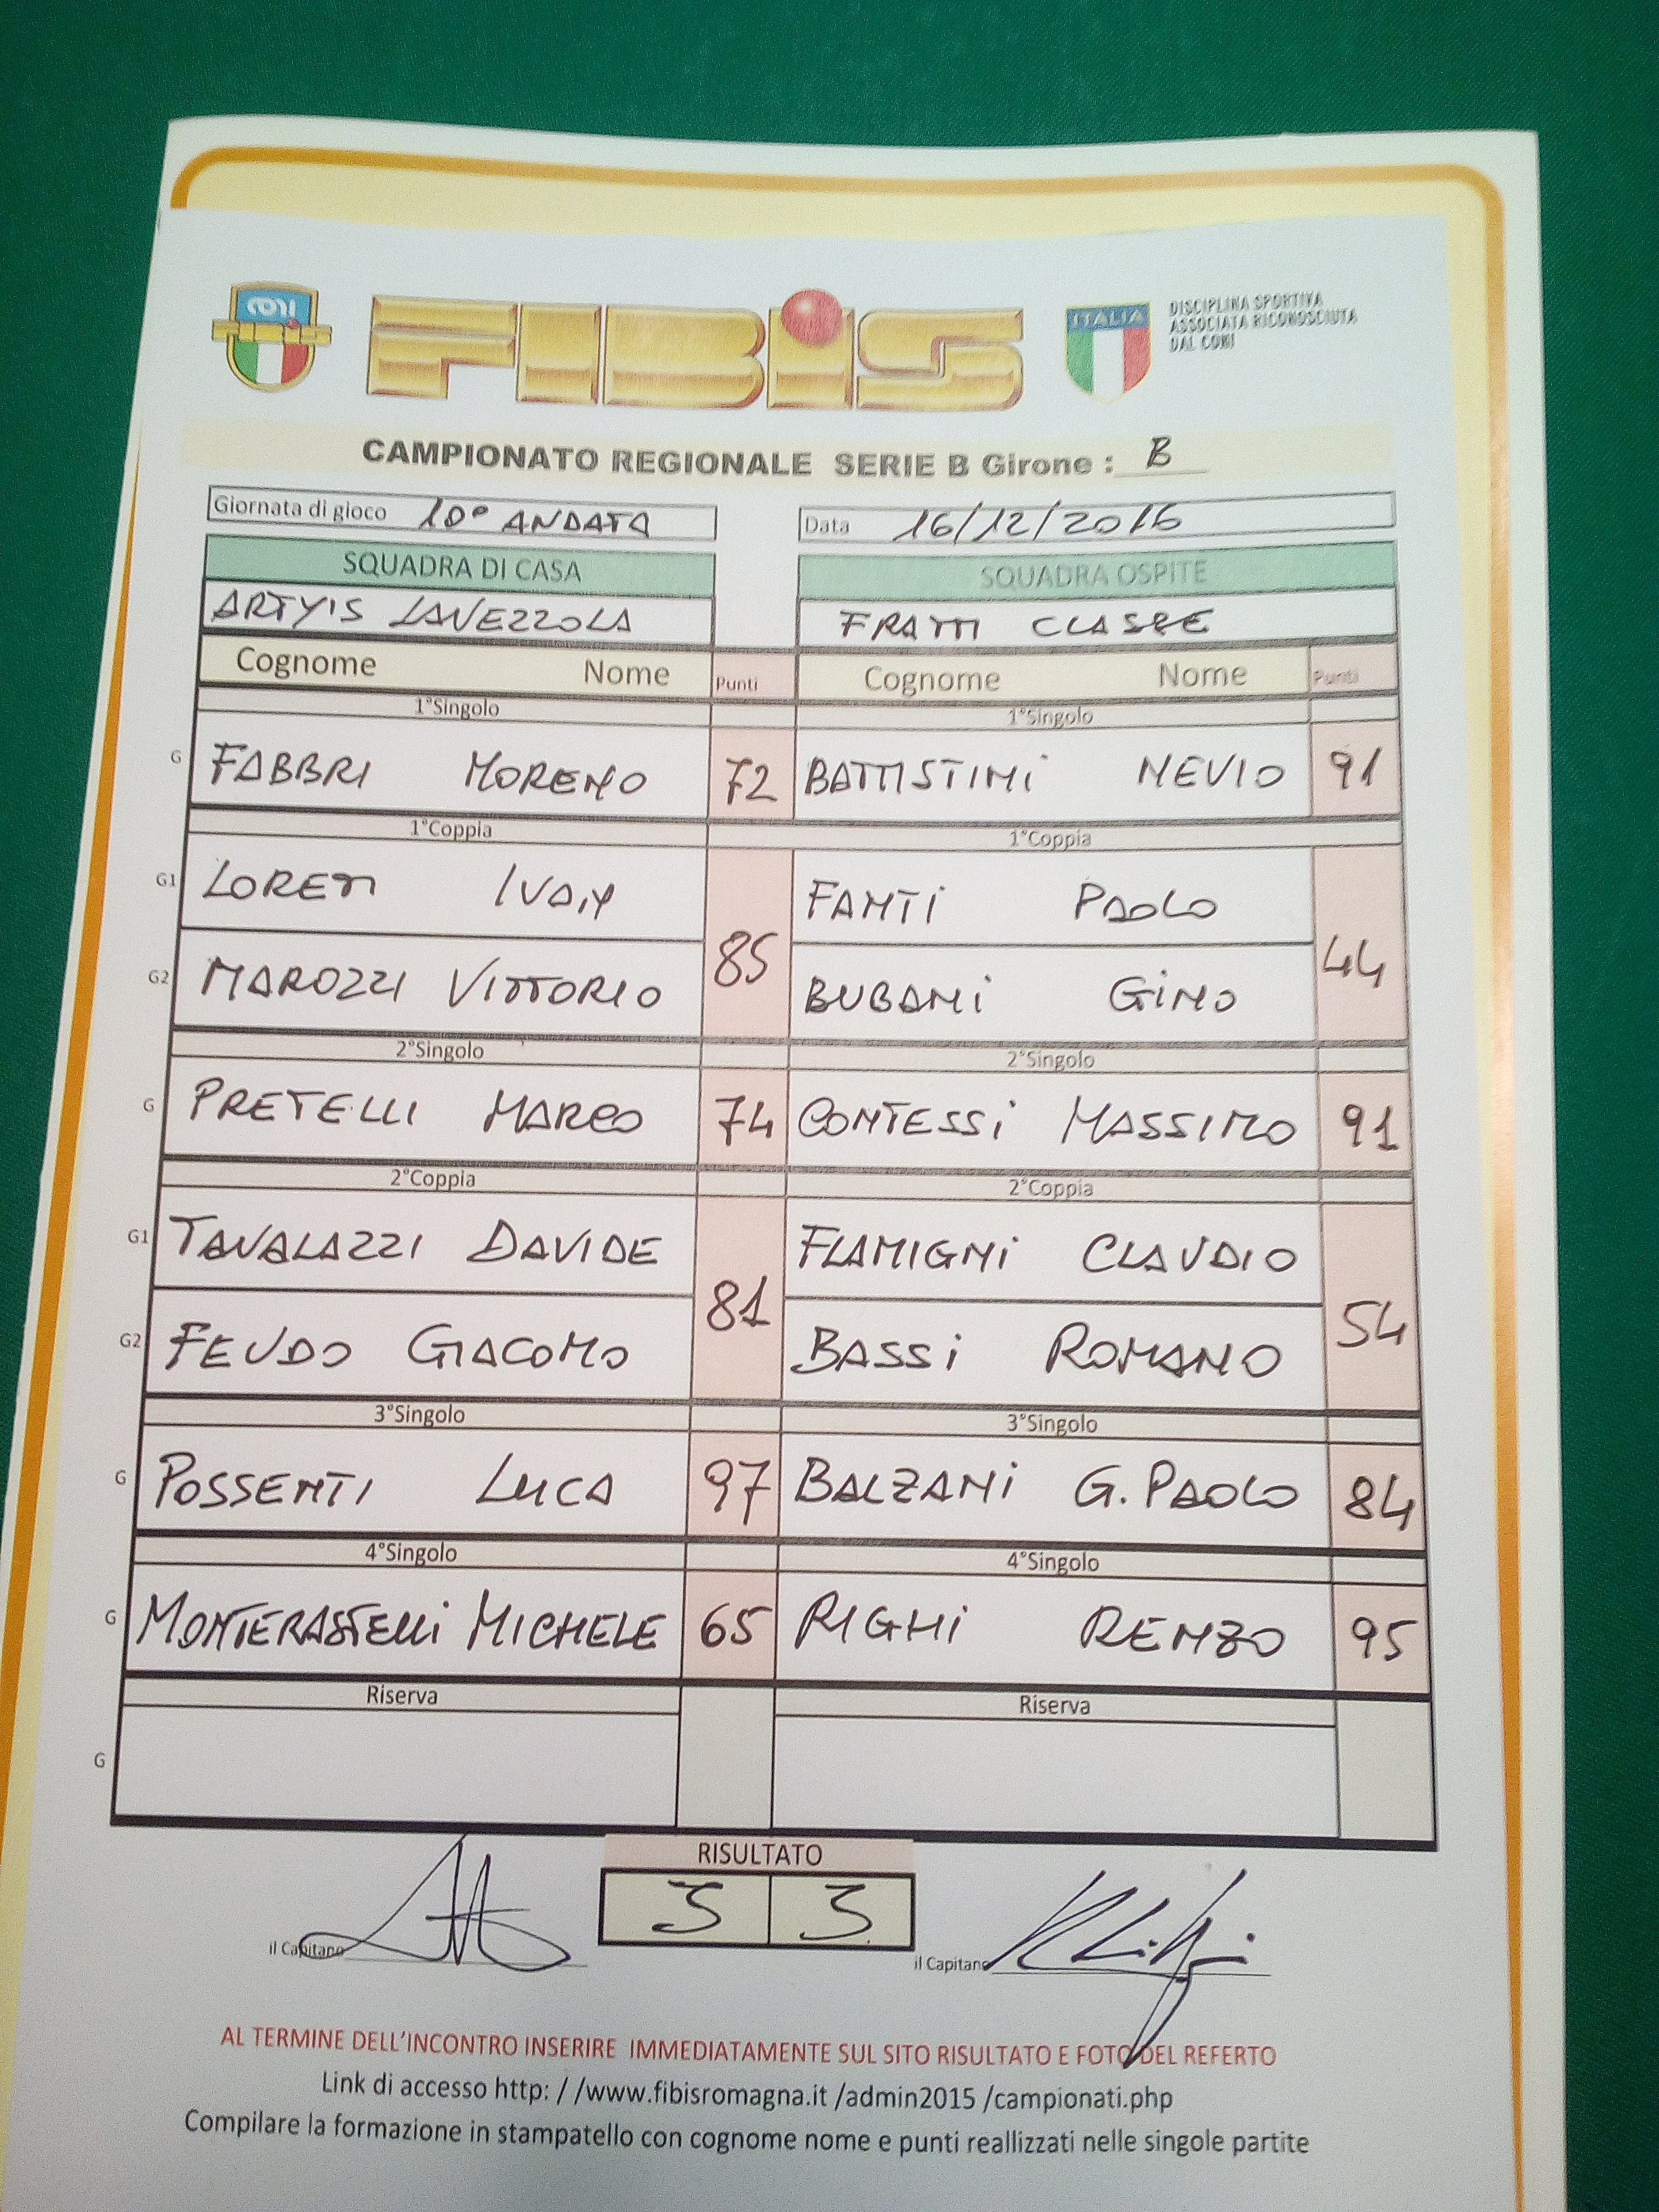 CONI
FIBiS
ITALIA
DISCIPLINA SPORTIVA
ASSOCIATA RICONOSCIUTA
DAL CONI
CAMPIONATO REGIONALE SERIE B Girone : B
Giornata di gioco 10° ANDATA Data 16/12/2016
SQUADRA DI CASA SQUADRA OSPITE
ARTYIS LAVEZZOLA FRATTI CLASSE
Cognome Nome Punti Cognome Nome Punti
1°Singolo 1°Singolo
G FABBRI MORENO 72 BATTISTINI NEVIO 91
1°Coppia 1°Coppia
G1 LORETI IVAN FANTI PAOLO
85 44
G2 MAROZZI VITTORIO BUBANI GINO
2°Singolo 2°Singolo
G PRETELLI MARCO 74 CONTESSI MASSIMO 91
2°Coppia 2°Coppia
G1 TAVALAZZI DAVIDE FLAMIGNI CLAUDIO
81 54
G2 FEUDO GIACOMO BASSI ROMANO
3°Singolo 3°Singolo
G POSSENTI LUCA 97 BALZANI G. PAOLO 84
4°Singolo 4°Singolo
G MONTERASTELLI MICHELE 65 RIGHI RENZO 95
Riserva Riserva
G
RISULTATO
3 3
il Capitano il Capitano
AL TERMINE DELL'INCONTRO INSERIRE IMMEDIATAMENTE SUL SITO RISULTATO E FOTO DEL REFERTO
Link di accesso http: / /www.fibisromagna.it /admin2015 /campionati.php
Compilare la formazione in stampatello con cognome nome e punti reallizzati nelle singole partite